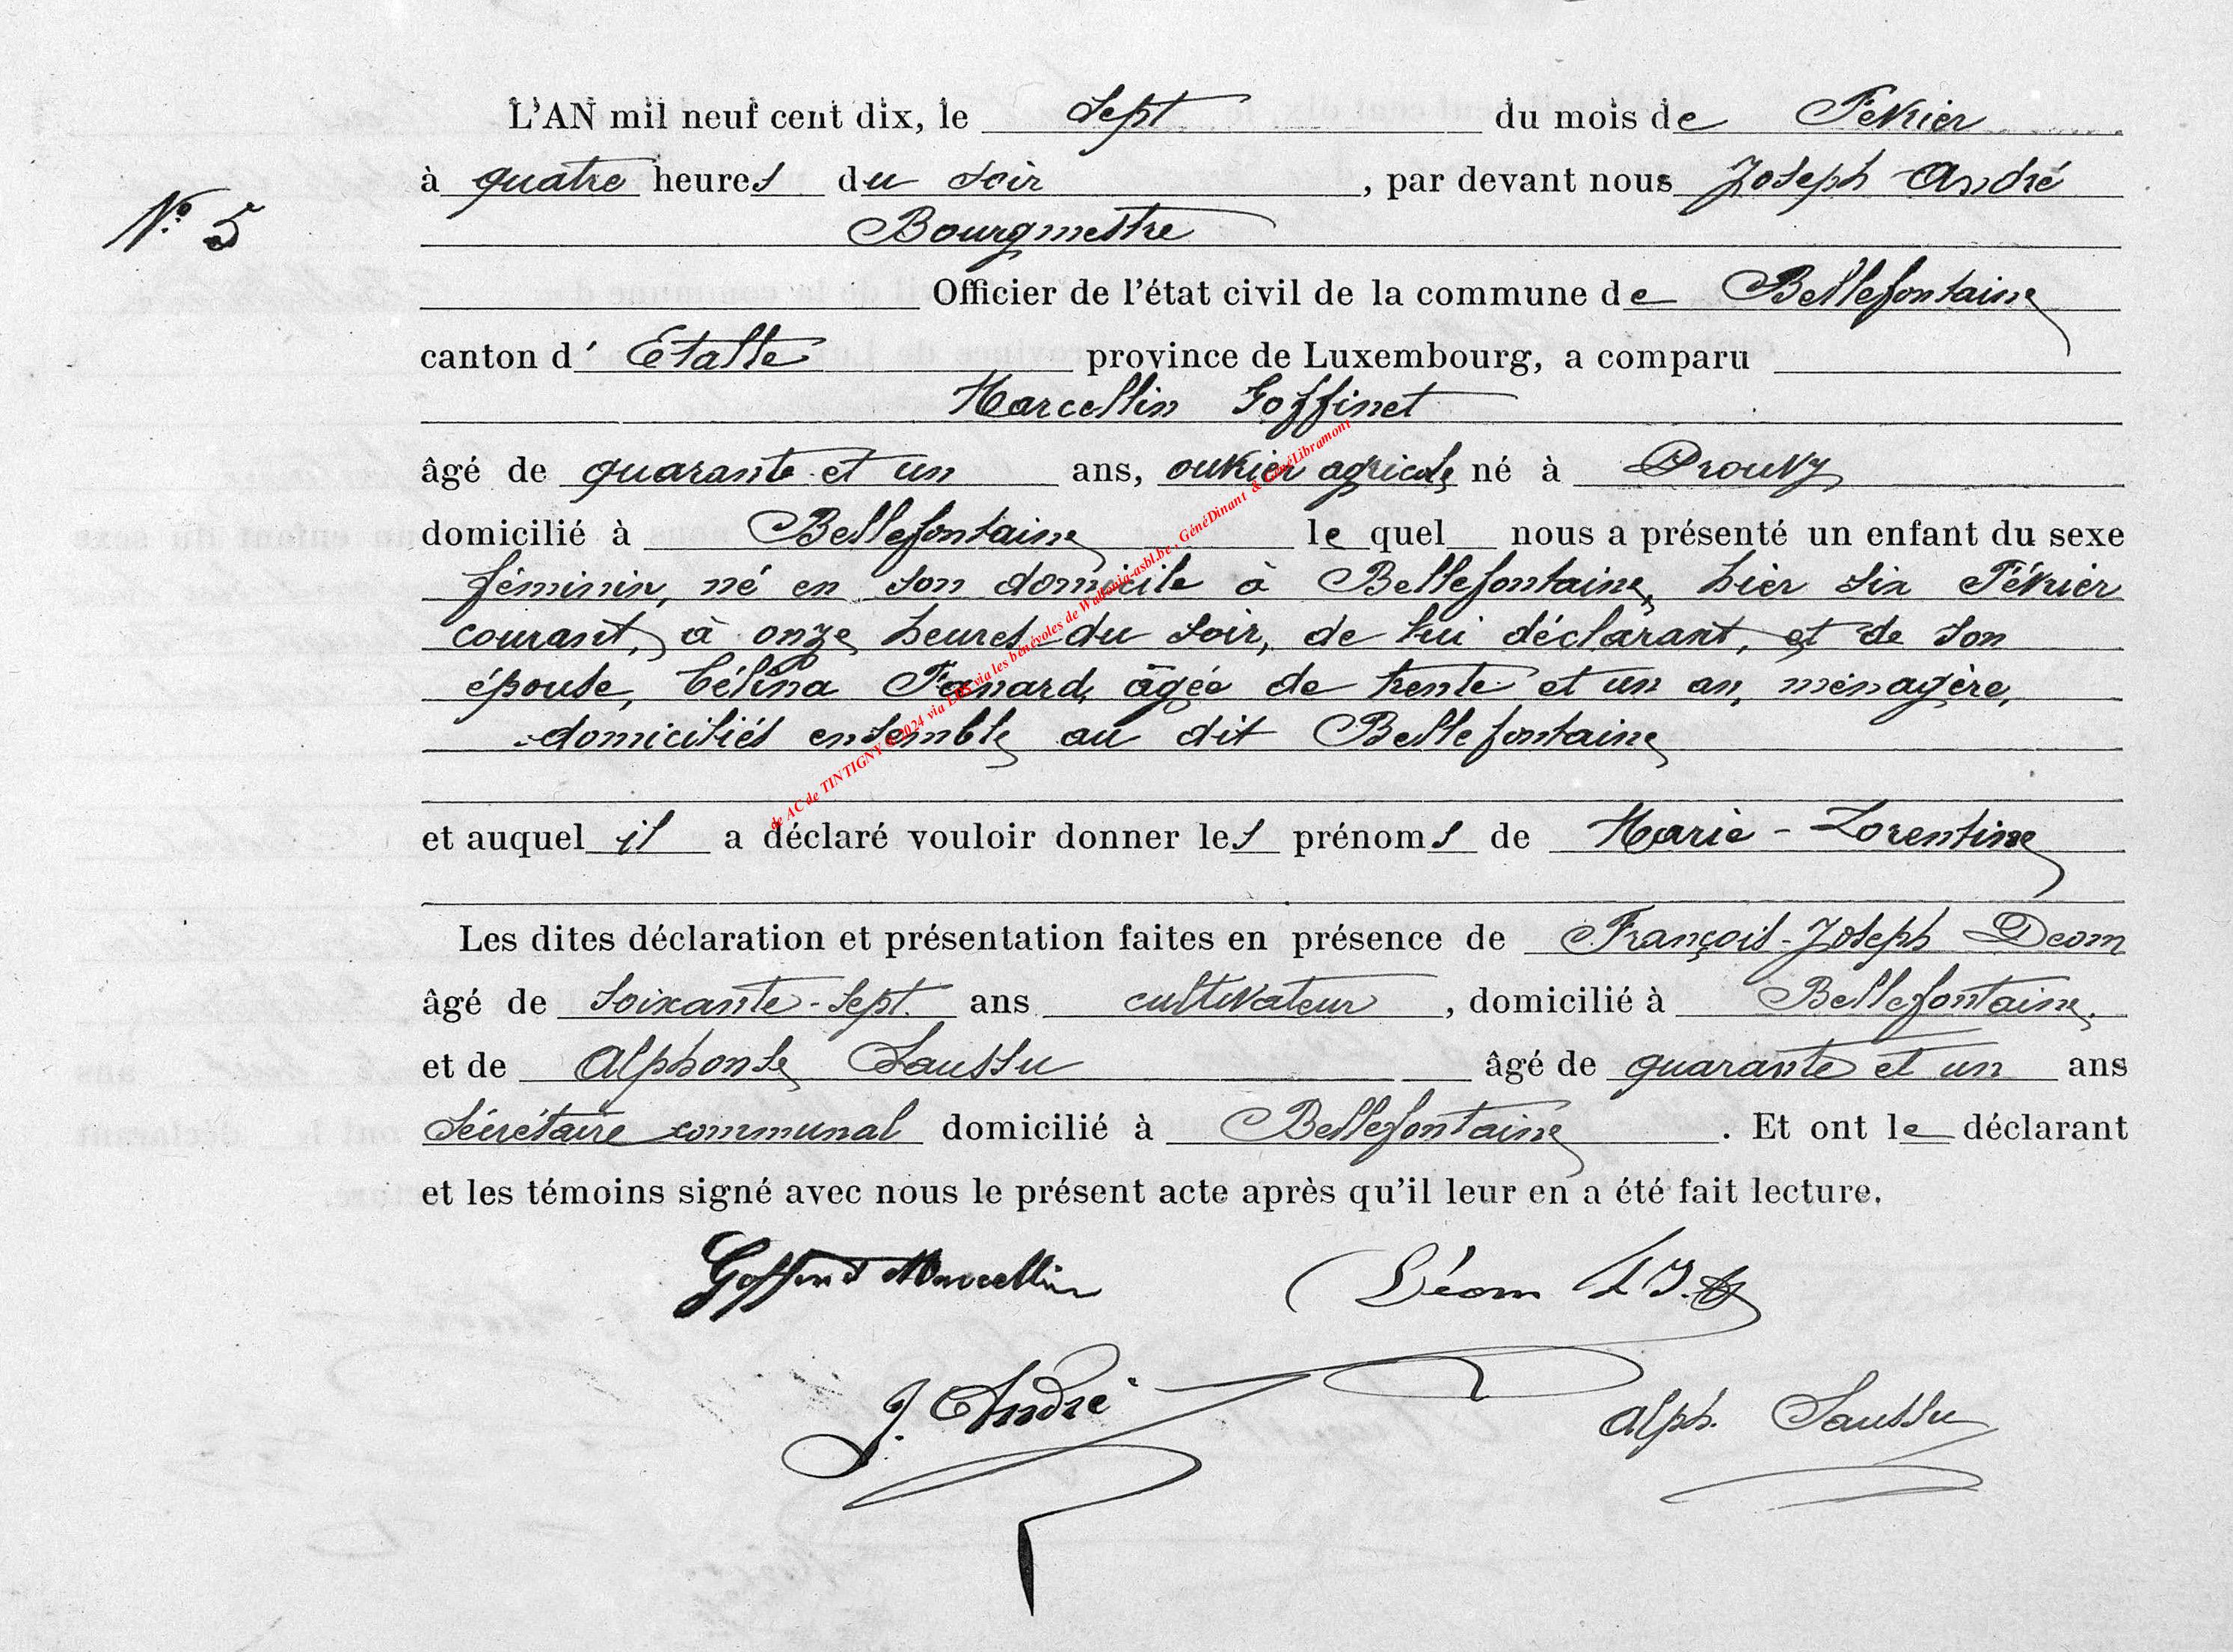 L'AN mil neuf cent dix, le sept du mois de Février
à quatre heures du soir, par devant nous Joseph André
N° 5
Bourgmestre
Officier de l'état civil de la commune de Bellefontaine
canton d'Etalle province de Luxembourg, a comparu
Marcellin Goffinet
âgé de quarante et un ans, ouvrier agricole né à Prouvy
domicilié à Bellefontaine lequel nous a présenté un enfant du sexe
féminin, né en son domicile à Bellefontaine, hier six Février
courant, à onze heures du soir, de lui déclarant, et de son
épouse, Célina Fanard, âgée de trente et un an, ménagère,
domiciliés ensemble au dit Bellefontaine
de AC de TINTIGNY © 2024 via LDS via les bénévoles de Wallonia-asbl.be, GénéDinant & GénéLibramont
et auquel il a déclaré vouloir donner les prénoms de Marie-Lorentine
Les dites déclaration et présentation faites en présence de François-Joseph Deom
âgé de soixante-sept ans cultivateur, domicilié à Bellefontaine,
et de Alphonse Saussu âgé de quarante et un ans
Sécrétaire communal domicilié à Bellefontaine. Et ont le déclarant
et les témoins signé avec nous le présent acte après qu'il leur en a été fait lecture.
Goffinet Marcellin Déom
J. André Alph. Saussu